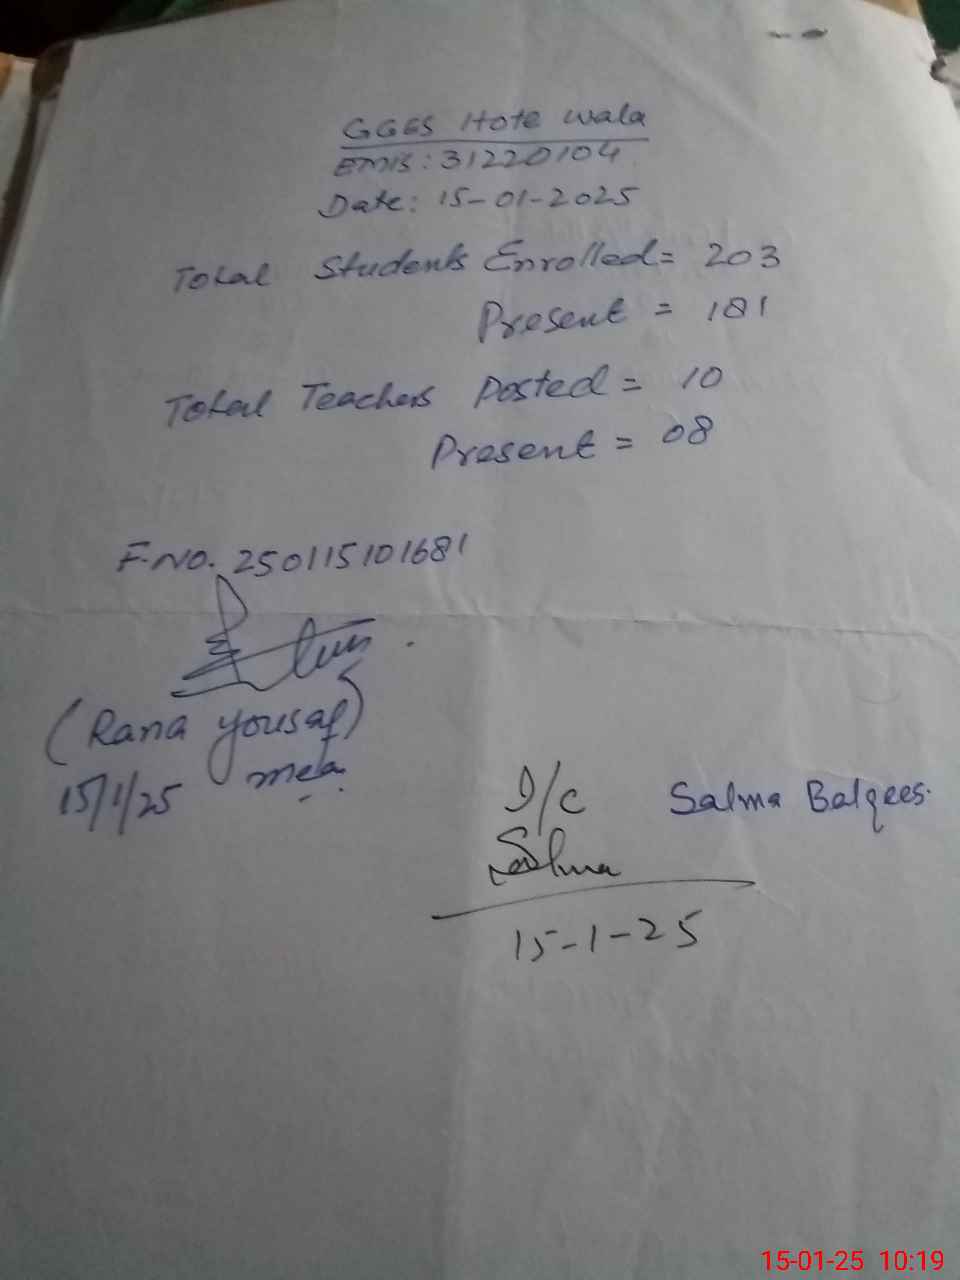 GGES Hote wala
EMIS: 31220104
Date: 15-01-2025
Total Students Enrolled = 203
Present = 181
Total Teachers Posted = 10
Present = 08
F.No. 250115101681
(Rana Yousaf)
15/1/25 mea
I/C Salma Balqees.
Salma
15-1-25
15-01-25 10:19